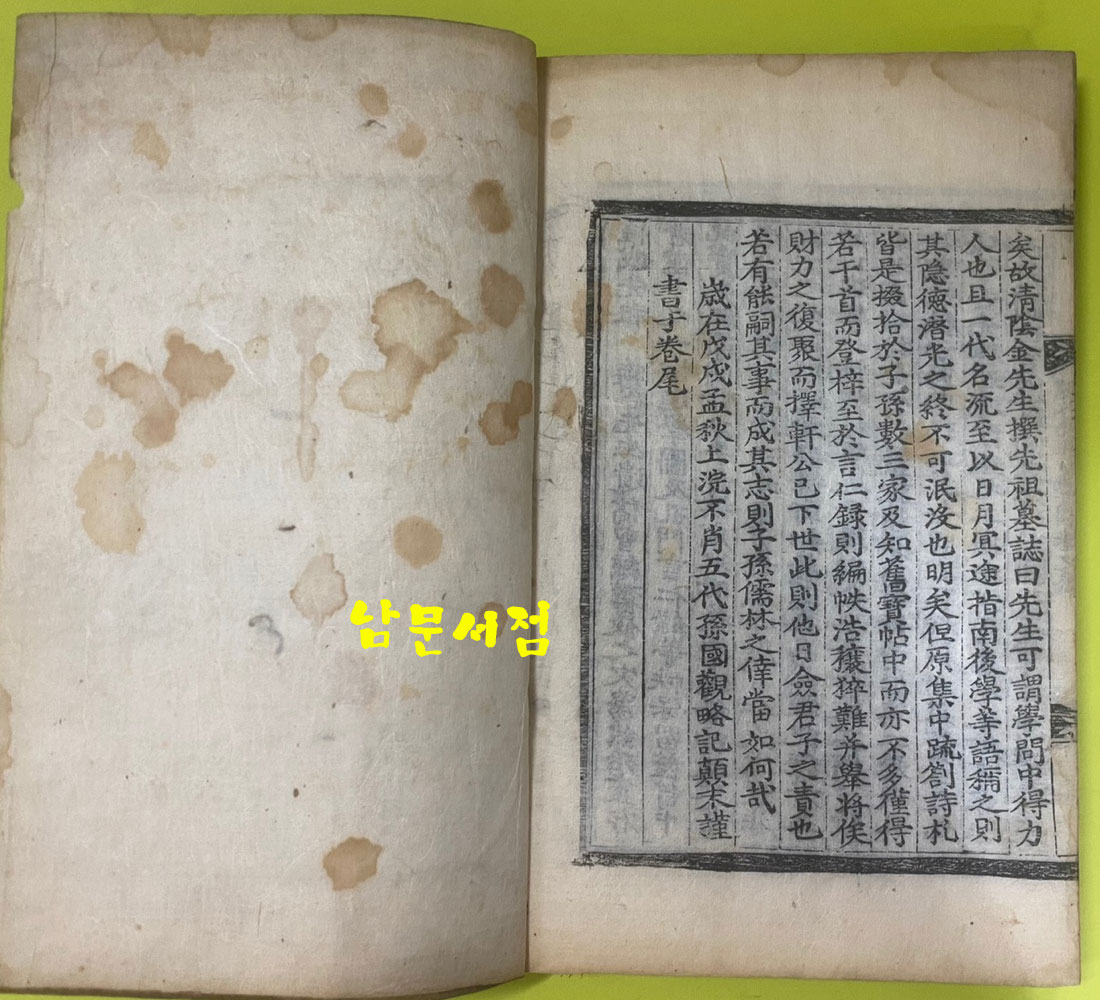 矣故清陰金先生撰先祖墓誌曰先生可謂學問中得力
人也且一代名流至以日月冥途指南後學等語稱之則
其隐德潛光之終不可泯沒也明矣但原集中疏劄詩札
皆是掇拾於子孫數三家及知舊寶帖中而亦不多僅得
若干首而登梓至於言仁録則編帙浩穰猝難并舉將俟
財力之復聚而擇軒公已下世此則他日僉君子之責也
若有能嗣其事而成其志則子孫儒林之倖當如何哉
歲在戊戌孟秋上浣不肖五代孫國觀略記顛末謹
書于卷尾
남문서점